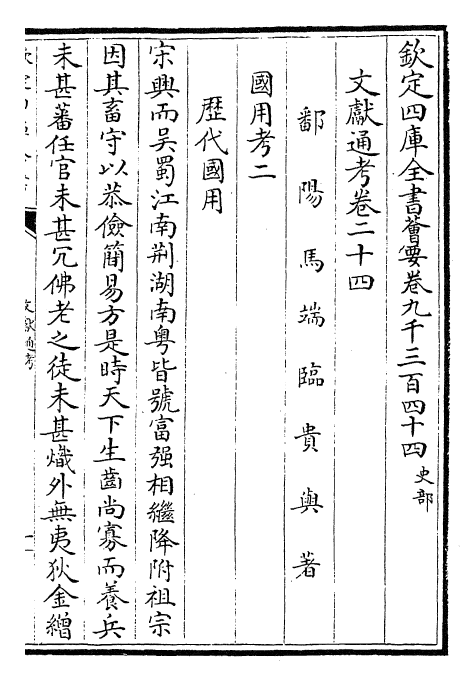 欽定四庫全書薈要卷九千三百四十四 史部
文獻通考卷二十四
鄱陽馬端臨貴與著
國用考二
歷代國用
宋興而吳蜀江南荆湖南粤皆號富强相繼降附祖宗
因其畜守以恭儉簡易方是時天下生齒尚寡而養兵
未甚蕃任官未甚冗佛老之徒未甚熾外無夷狄金繒
文獻通考